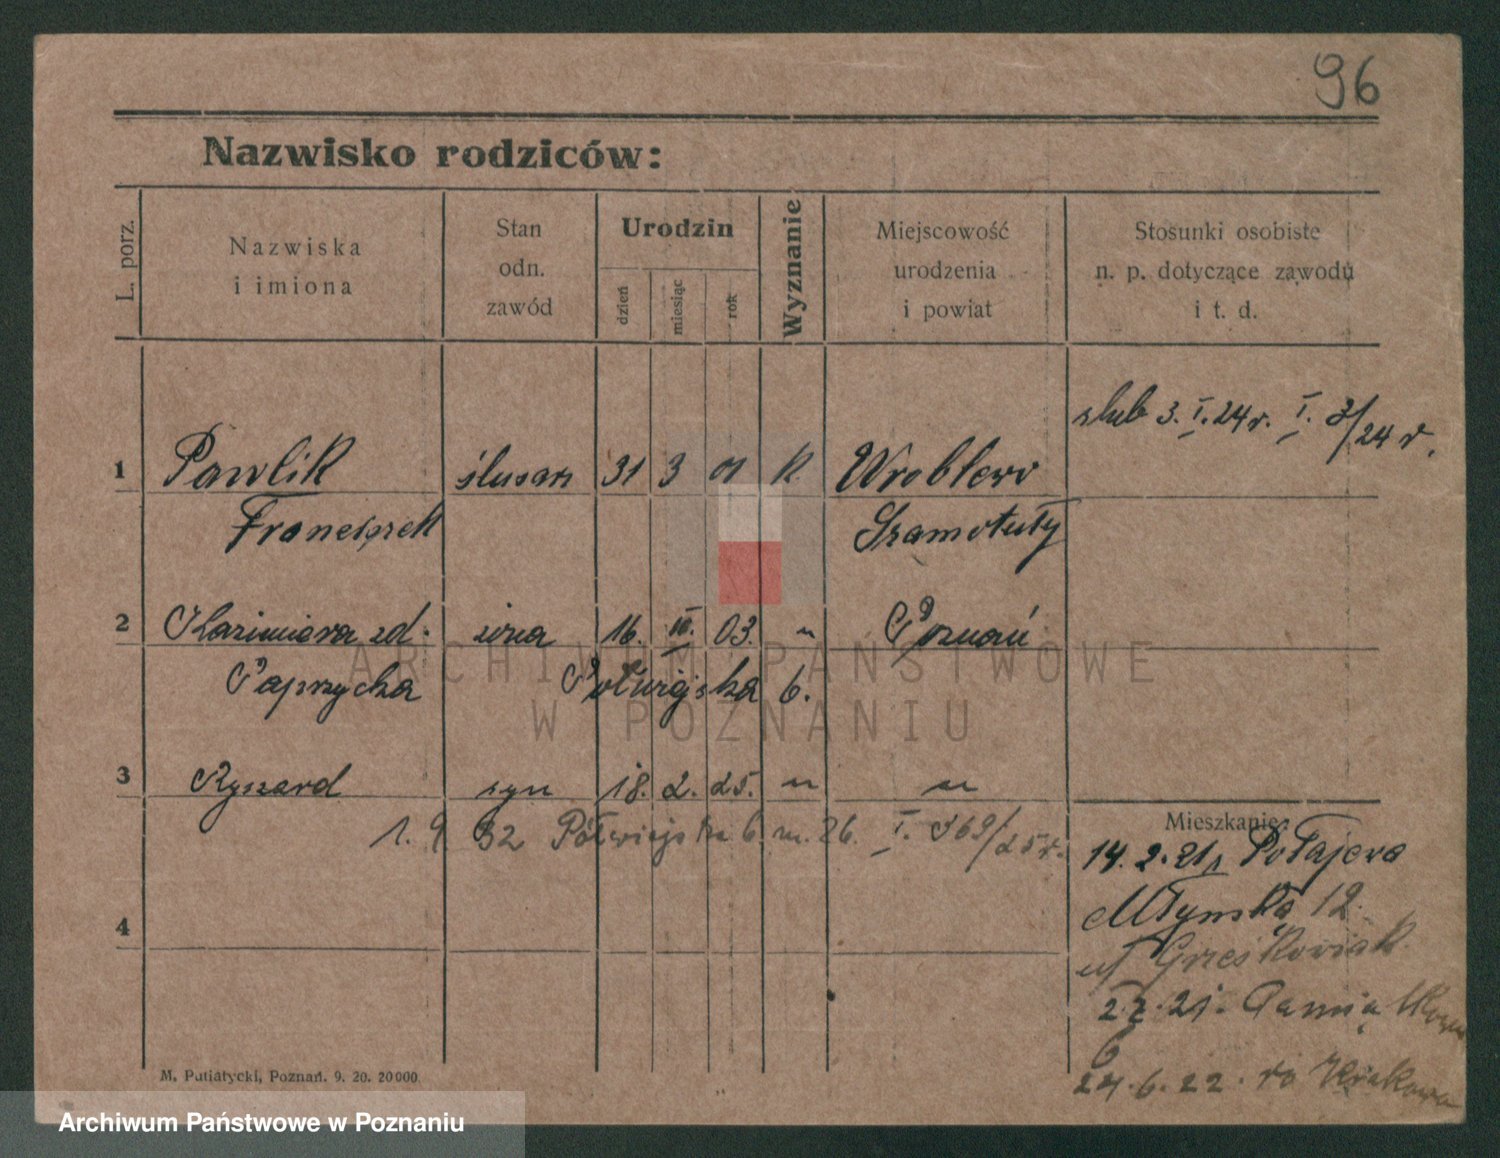 96
Nazwisko rodziców:
L. porz.
Nazwiska
i imiona
Stan
odn.
zawód
Urodzin
dzień
miesiąc
rok
Wyznanie
Miejscowość
urodzenia
i powiat
Stosunki osobiste
n. p. dotyczące zawodu
i t. d.
ślub 3. I. 24 r. I. 3/24 r.
1 Pawlik ślusarz 31 3 01 k. Wroblewo
Franciszek Szamotuły
2 Kazimiera zd. żona 16. III. 03. " Poznań
Paprzycka Półwiejska 6.
3 Ryszard syn 18. 2. 25. " "
1. 9 32 Półwiejska 6 m. 26. I. 369/25 r.
Mieszkanie:
14. 2. 21 Połajewa
Młyńska 12.
Grześkowiak
4
2. 7. 21.
6
24. 6. 22. do Krakowa
M. Putiatycki, Poznań. 9. 20. 20000.
ARCHIWUM PAŃSTWOWE
W POZNANIU
Archiwum Państwowe w Poznaniu